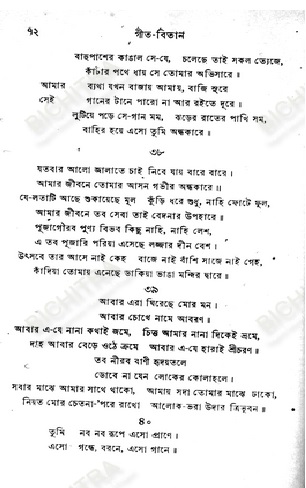 ৭২ গীত-বিতান
বাহুপাশের কাঙাল সে-যে, চলেছে তাই সকল ত্যেজে,
কাঁটার পথে ধায় সে তোমার অভিসারে॥
আমার ব্যথা যখন বাজায় আমায়, বাজি সুরে
সেই গানের টানে পারো না আর রইতে দূরে॥
লুটিয়ে পড়ে সে-গান মম, ঝড়ের রাতের পাখি সম,
বাহির হয়ে এসো তুমি অন্ধকারে॥
৩৮
যতবার আলো জালাতে চাই নিবে যায় বারে বারে।
আমার জীবনে তোমার আসন গভীর অন্ধকারে॥
যে-লতাটি আছে শুকায়েছে মূল কুঁড়ি ধরে শুধু, নাহি ফোটে ফুল,
আমার জীবনে তব সেবা তাই বেদনার উপহারে॥
পূজাগৌরব পুণ্য বিভব কিছু নাহি, নাহি লেশ,
এ তব পূজারি পরিয়া এসেছে লজ্জার দীন বেশ।
উৎসবে তার আসে নাই কেহ বাজে নাই বাঁশি সাজে নাই গেহ,
কাঁদিয়া তোমায় এনেছে ডাকিয়া ভাঙা মন্দির দ্বারে॥
৩৯
আবার এরা ঘিরেছে মোর মন।
আবার চোখে নামে আবরণ॥
আবার এ-যে নানা কথাই জমে, চিত্ত আমার নানা দিকেই ভ্রমে,
দাহ আবার বেড়ে ওঠে ক্রমে আবার এ-যে হারাই শ্রীচরণ॥
তব নীরব বাণী হৃদয়তলে
ডোবে না যেন লোকের কোলাহলে।
সবার মাঝে আমার সাথে থাকো, আমায় সদা তোমার মাঝে ঢাকো,
নিয়ত মোর চেতনা-'পরে রাখো আলোক-ভরা উদার ত্রিভুবন॥
৪০
তুমি নব নব রূপে এসো প্রাণে।
এসো গন্ধে, বরনে, এসো গানে॥